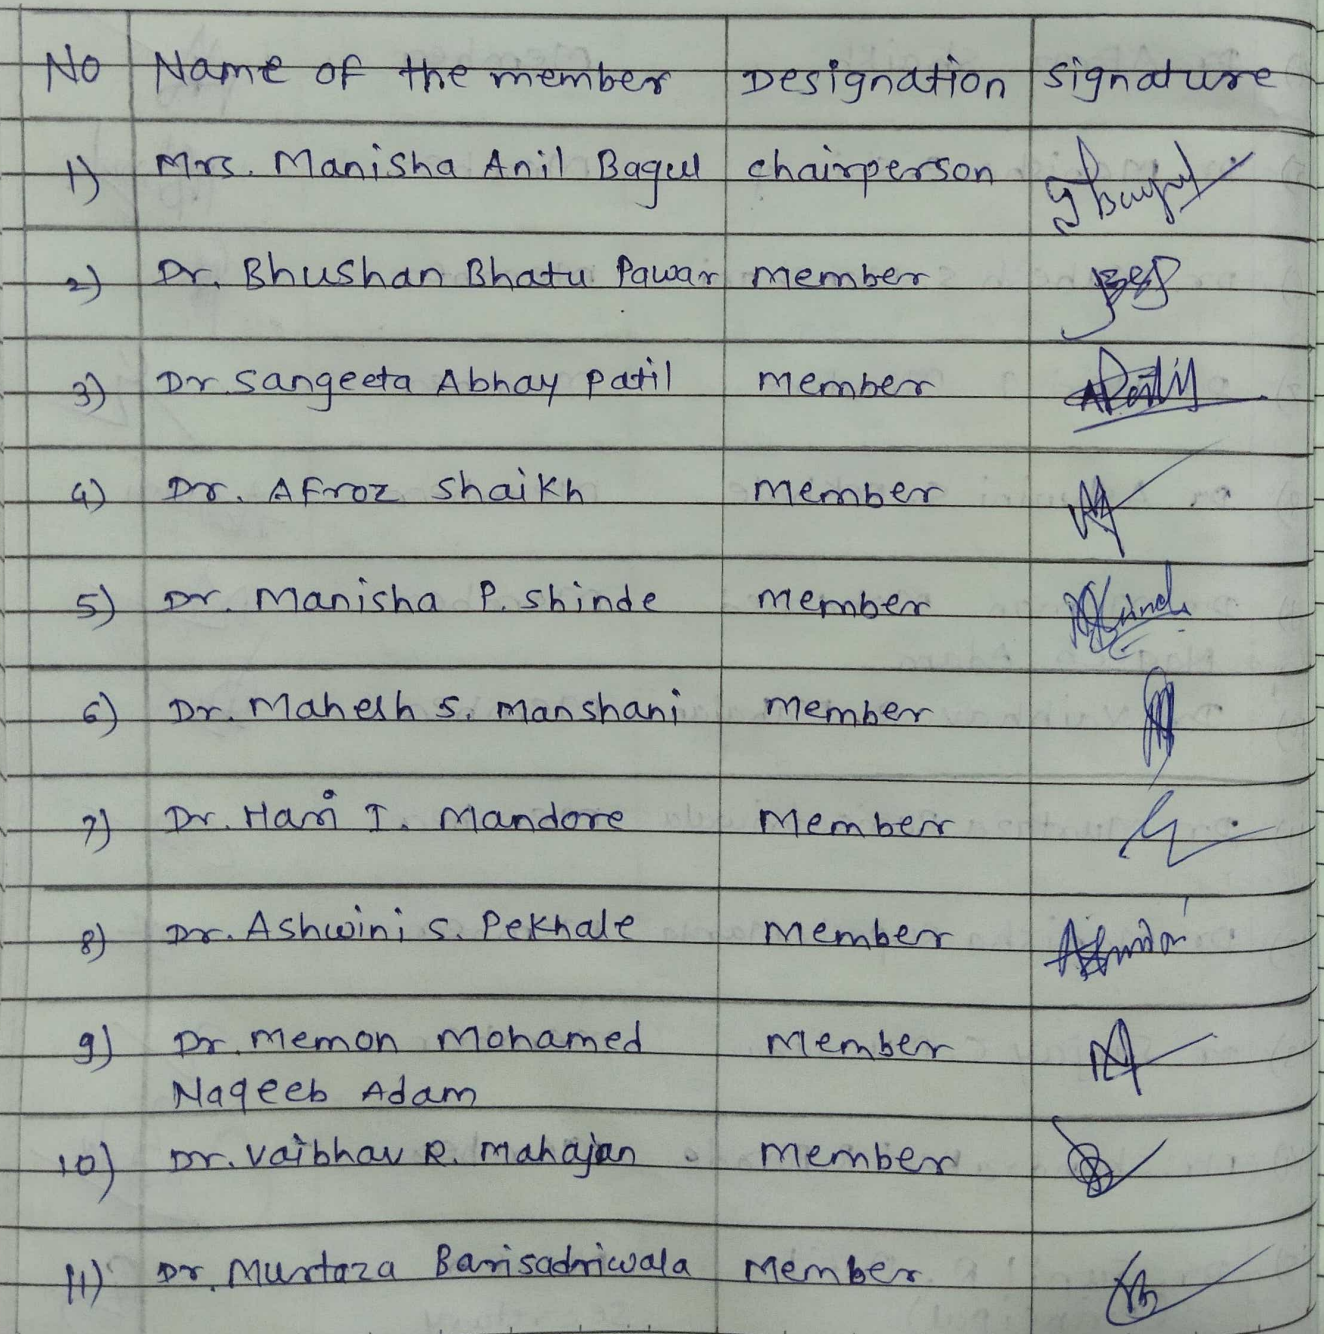 No Name of the member Designation Signature
1) Mrs. Manisha Anil Bagul chairperson
2) Dr. Bhushan Bhatu Pawar member
3) Dr. Sangeeta Abhay Patil member
4) Dr. Afroz Shaikh member
5) Dr. Manisha P. Shinde member
6) Dr. Mahesh S. Manshani member
7) Dr. Hari I. Mandore Member
8) Dr. Ashwini S. Pekhale member
9) Dr. Memon Mohamed member
Naqeeb Adam
10) Dr. Vaibhav R. Mahajan member
11) Dr. Murtaza Barisadriwala Member